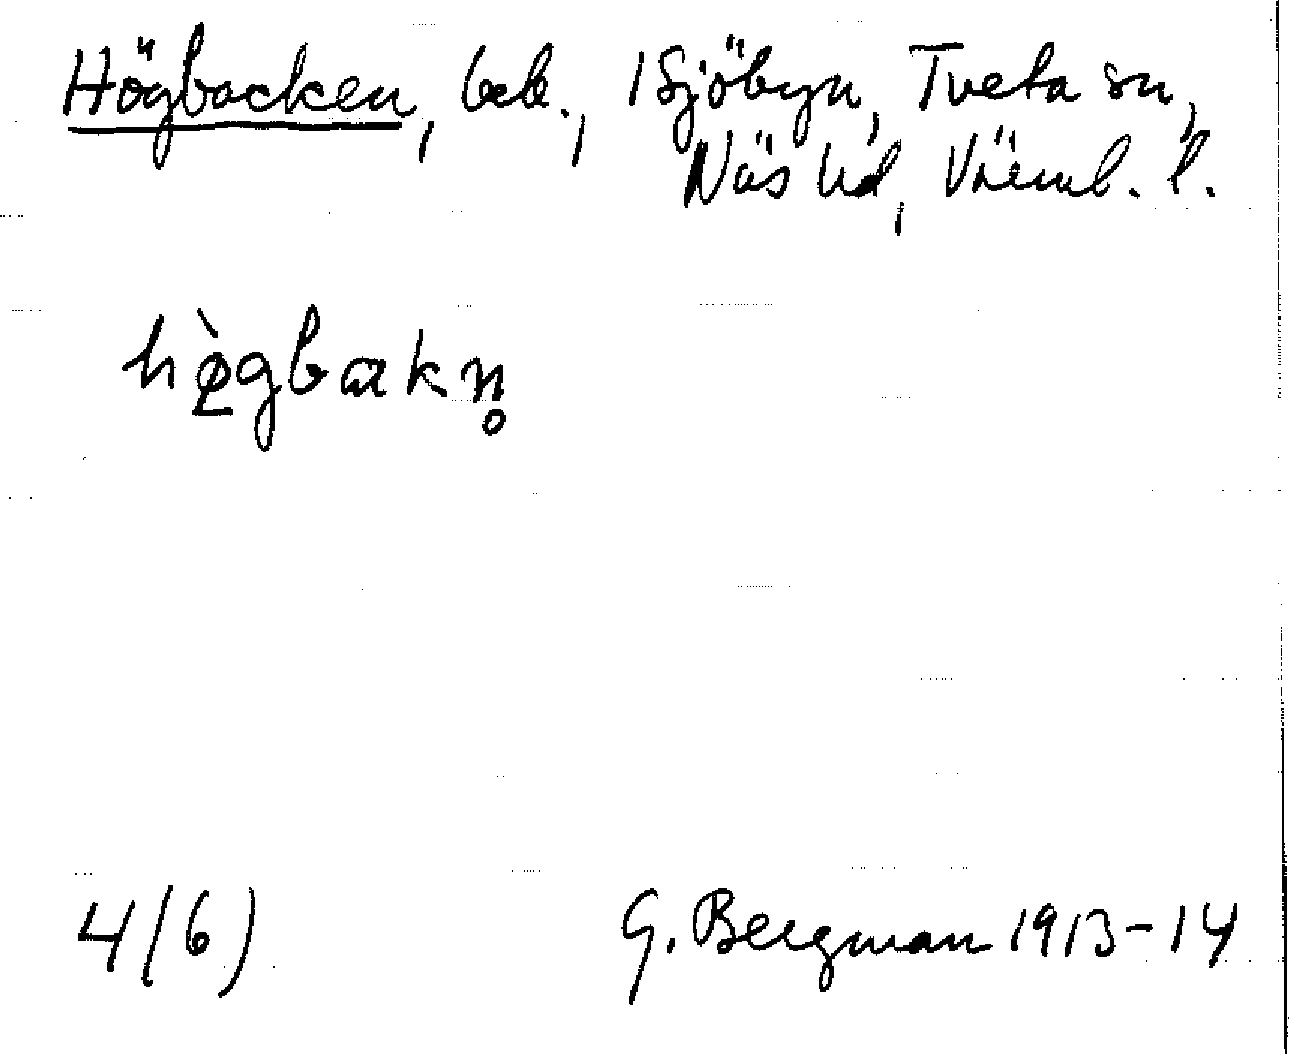 Högbacken, beb., 1 Sjöbyn, Tveta sn,
Näs hd, Värml. l.
hø̠̀gbakn̥
4(6) G. Bergman 1913-14